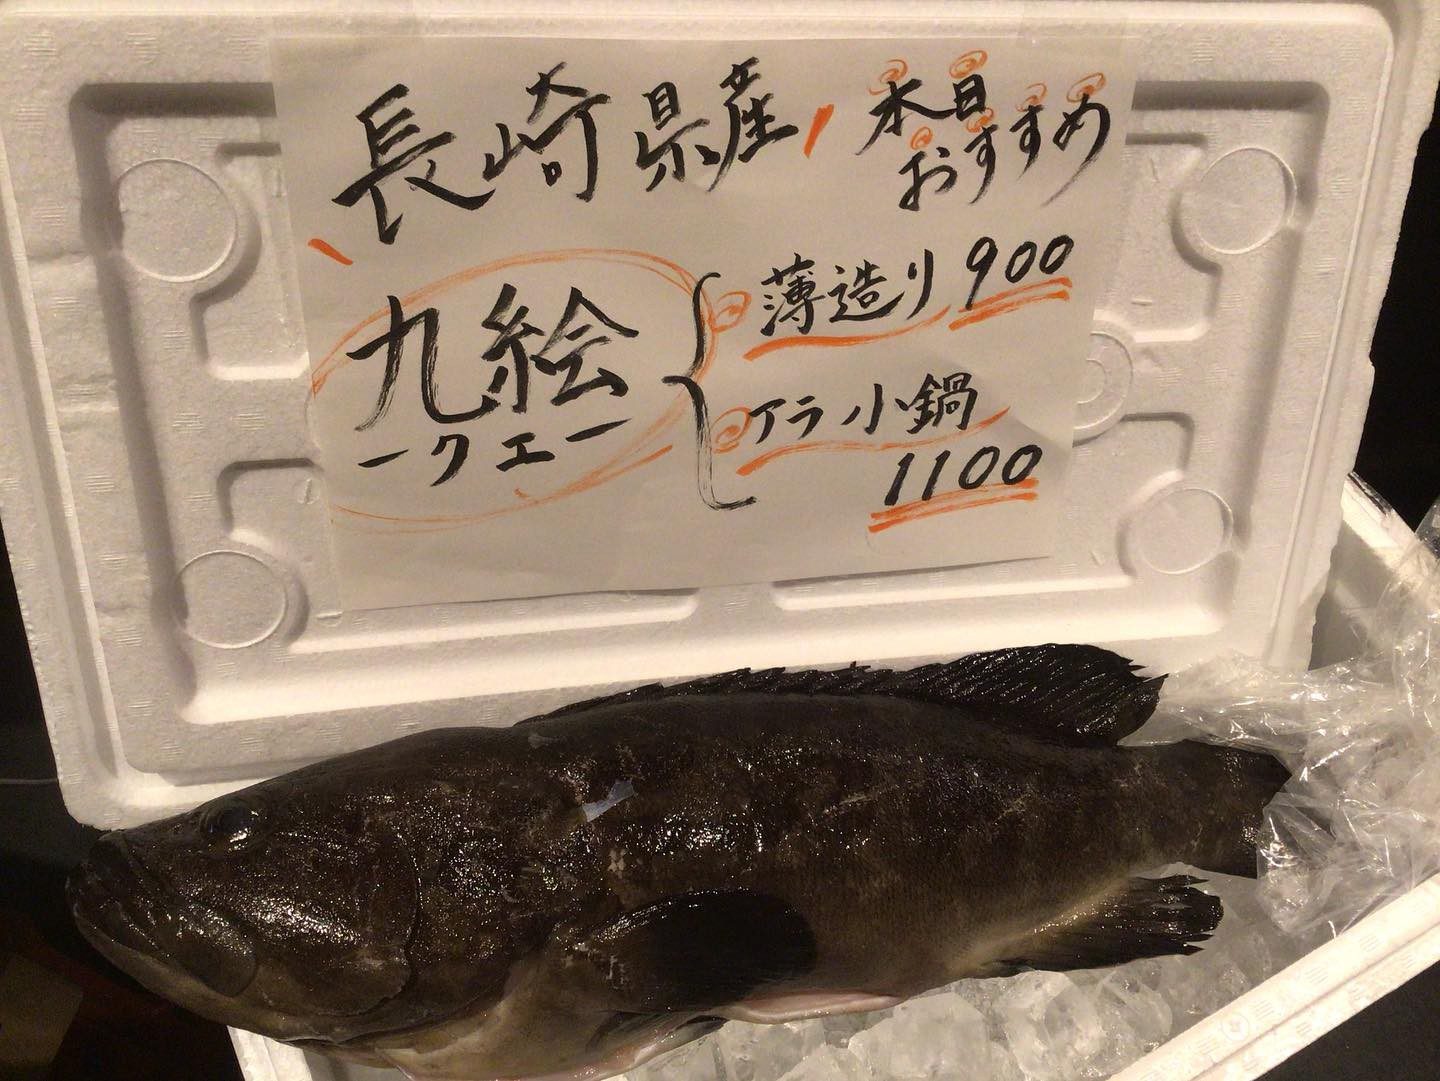 長崎県産
本日
おすすめ
九絵
ークエー
薄造り 900
アラ小鍋
1100